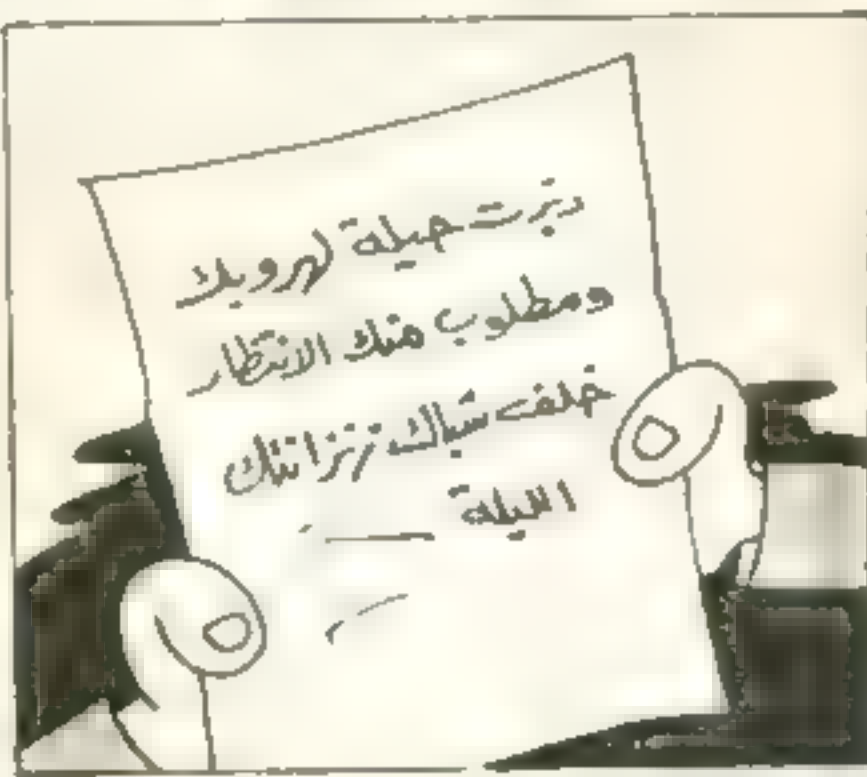 دبّرت حيلة لهروبك
ومطلوب منك الانتظار
خلف شباك زنزانتك
الليلة